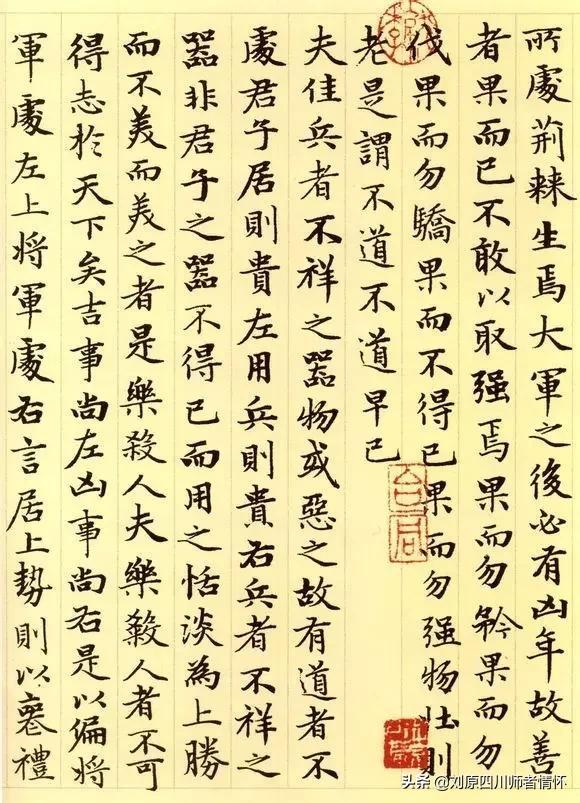 所處荆棘生焉大軍之後必有凶年故善
者果而已不敢以取强焉果而勿矜果而勿
伐果而勿驕果而不得已果而勿强物壯則
老是謂不道不道早已
夫佳兵者不祥之器物或惡之故有道者不
處君子居則貴左用兵則貴右兵者不祥之
器非君子之器不得已而用之恬淡為上勝
而不美而美之者是樂殺人夫樂殺人者不可
得志於天下矣吉事尚左凶事尚右是以偏將
軍處左上將軍處右言居上勢則以喪禮
头条 @刘原四川师者情怀